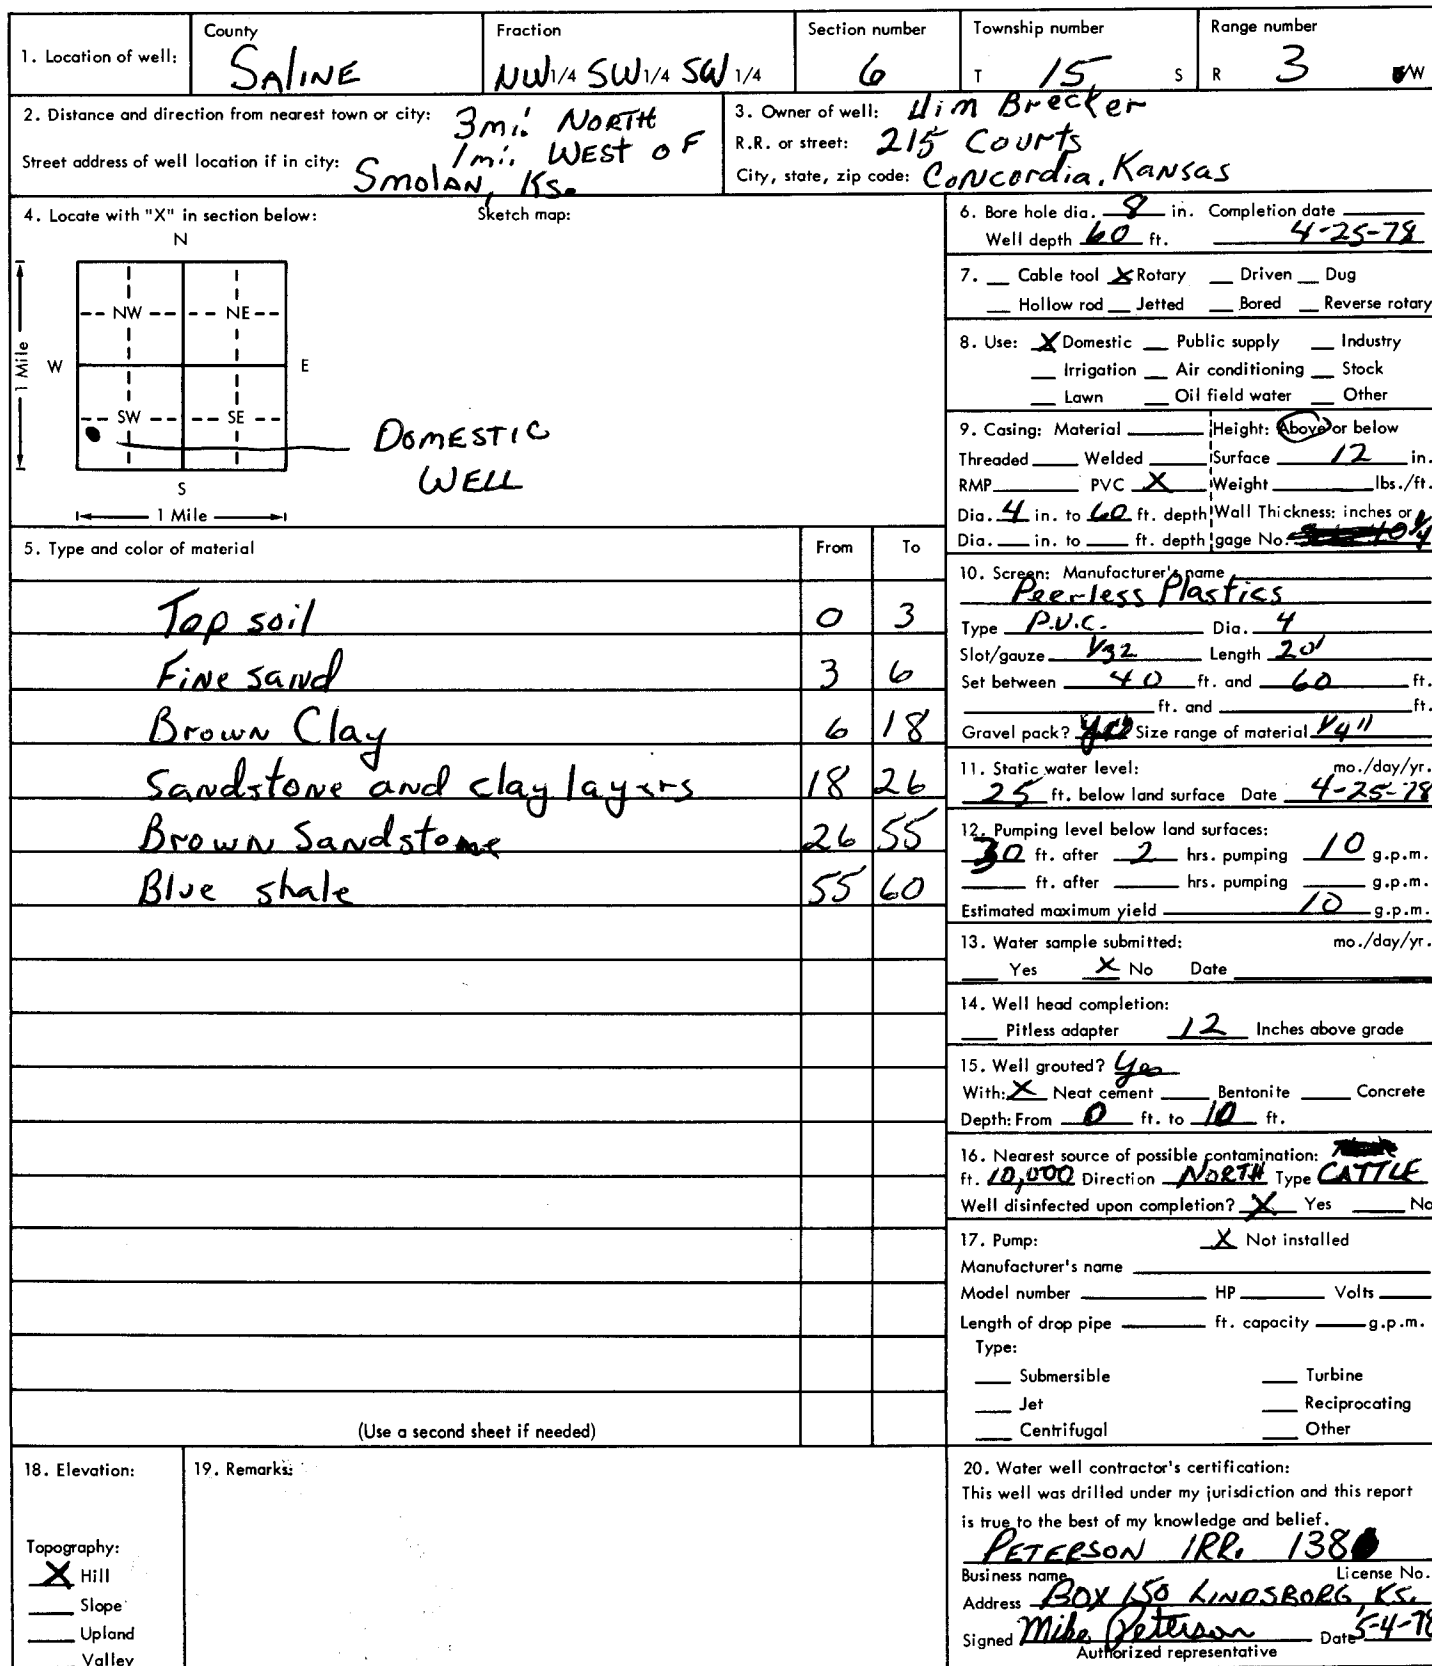 1. Location of well: County SALINE Fraction NW 1/4 SW 1/4 SW 1/4 Section number 6 Township number T 15 S Range number R 3 /W
2. Distance and direction from nearest town or city: 3 mi. NORTH
1 mi. WEST OF
Street address of well location if in city: Smolan, Ks.
3. Owner of well: Jim Brecker
R.R. or street: 215 Courts
City, state, zip code: Concordia, Kansas
4. Locate with "X" in section below: Sketch map:
N
NW NE
W E
1 Mile
SW SE
DOMESTIC
WELL
S
1 Mile
5. Type and color of material From To
Top soil 0 3
Fine sand 3 6
Brown Clay 6 18
Sandstone and clay layers 18 26
Brown Sandstone 26 55
Blue shale 55 60
(Use a second sheet if needed)
6. Bore hole dia. 8 in. Completion date
Well depth 60 ft. 4-25-78
7. Cable tool X Rotary Driven Dug
Hollow rod Jetted Bored Reverse rotary
8. Use: X Domestic Public supply Industry
Irrigation Air conditioning Stock
Lawn Oil field water Other
9. Casing: Material Height: Above or below
Threaded Welded Surface 12 in.
RMP PVC X Weight lbs./ft.
Dia. 4 in. to 60 ft. depth Wall Thickness: inches or
Dia. in. to ft. depth gage No. 1/4
10. Screen: Manufacturer's name
Peerless Plastics
Type P.V.C. Dia. 4
Slot/gauze 1/32 Length 20'
Set between 40 ft. and 60 ft.
ft. and ft.
Gravel pack? yes Size range of material 1/4"
11. Static water level: mo./day/yr.
25 ft. below land surface Date 4-25-78
12. Pumping level below land surfaces:
30 ft. after 2 hrs. pumping 10 g.p.m.
ft. after hrs. pumping g.p.m.
Estimated maximum yield 10 g.p.m.
13. Water sample submitted: mo./day/yr.
Yes X No Date
14. Well head completion:
Pitless adapter 12 Inches above grade
15. Well grouted? Yes
With: X Neat cement Bentonite Concrete
Depth: From 0 ft. to 10 ft.
16. Nearest source of possible contamination:
ft. 10,000 Direction NORTH Type CATTLE
Well disinfected upon completion? X Yes No
17. Pump: X Not installed
Manufacturer's name
Model number HP Volts
Length of drop pipe ft. capacity g.p.m.
Type:
Submersible Turbine
Jet Reciprocating
Centrifugal Other
18. Elevation:
Topography:
X Hill
Slope
Upland
Valley
19. Remarks:
20. Water well contractor's certification:
This well was drilled under my jurisdiction and this report
is true to the best of my knowledge and belief.
PETERSON IRR. 138
Business name License No.
Address BOX 150 LINDSBORG, KS.
Signed Mike Peterson Date 5-4-78
Authorized representative